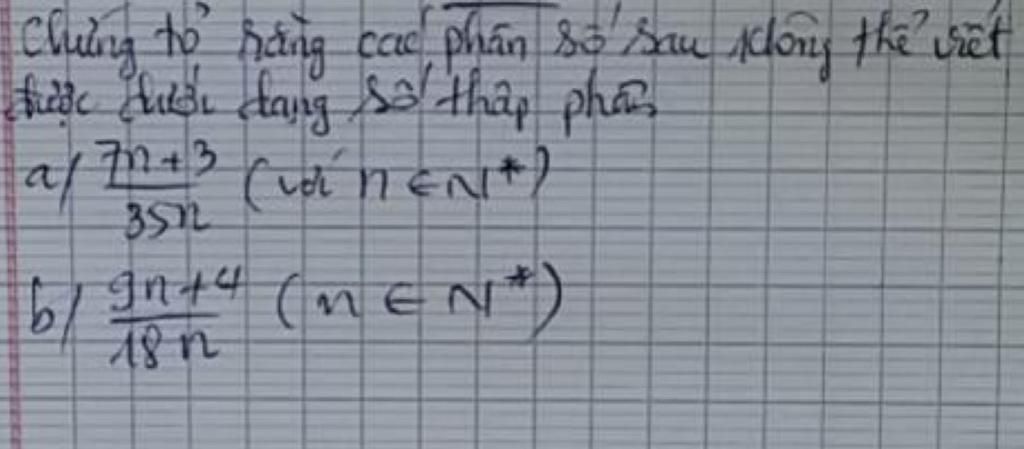 Chứng tỏ rằng các phân số sau không thể viết
được dưới dạng số thập phân
a/ \frac{7n+3}{35n} (với n ∈ N*)
b/ \frac{9n+4}{18n} (n ∈ N*)